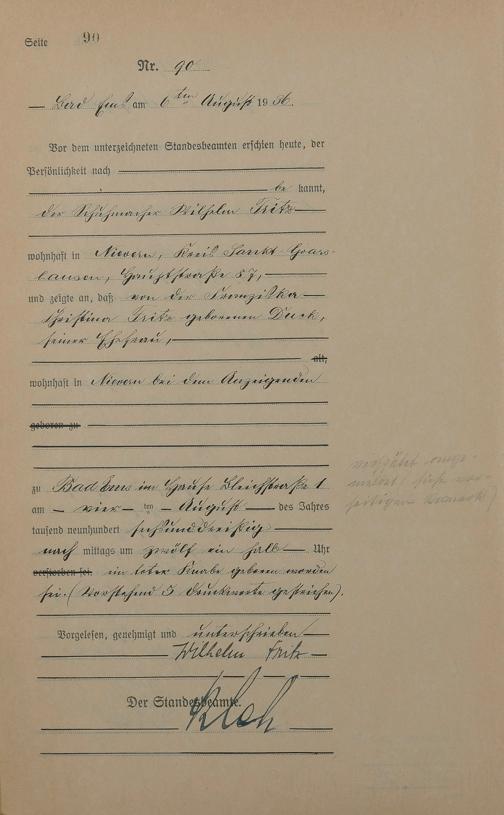 Seite 90
Nr. 90
Bad Ems am 6ten August 1936.
Vor dem unterzeichneten Standesbeamten erschien heute, der
Persönlichkeit nach
be kannt,
der Schuhmacher Wilhelm Fritz
wohnhaft in Nievern, Kreis Sankt Goars-
hausen, Hauptstraße 57,
und zeigte an, daß von der Franziska
Christina Fritz geborenen Duck,
seiner Ehefrau,
alt,
wohnhaft in Nievern bei dem Anzeigenden
geboren zu
zu Bad Ems im Hause Bleichstraße 1
am vier ten August des Jahres
tausend neunhundert sechsunddreißig
nach mittags um zwölf ein halb Uhr
verstorben sei. ein toter Knabe geboren worden
sei. (Vorstehend 3 Druckworte gestrichen).
Vorgelesen, genehmigt und unterschrieben
Wilhelm Fritz
Der Standesbeamte.